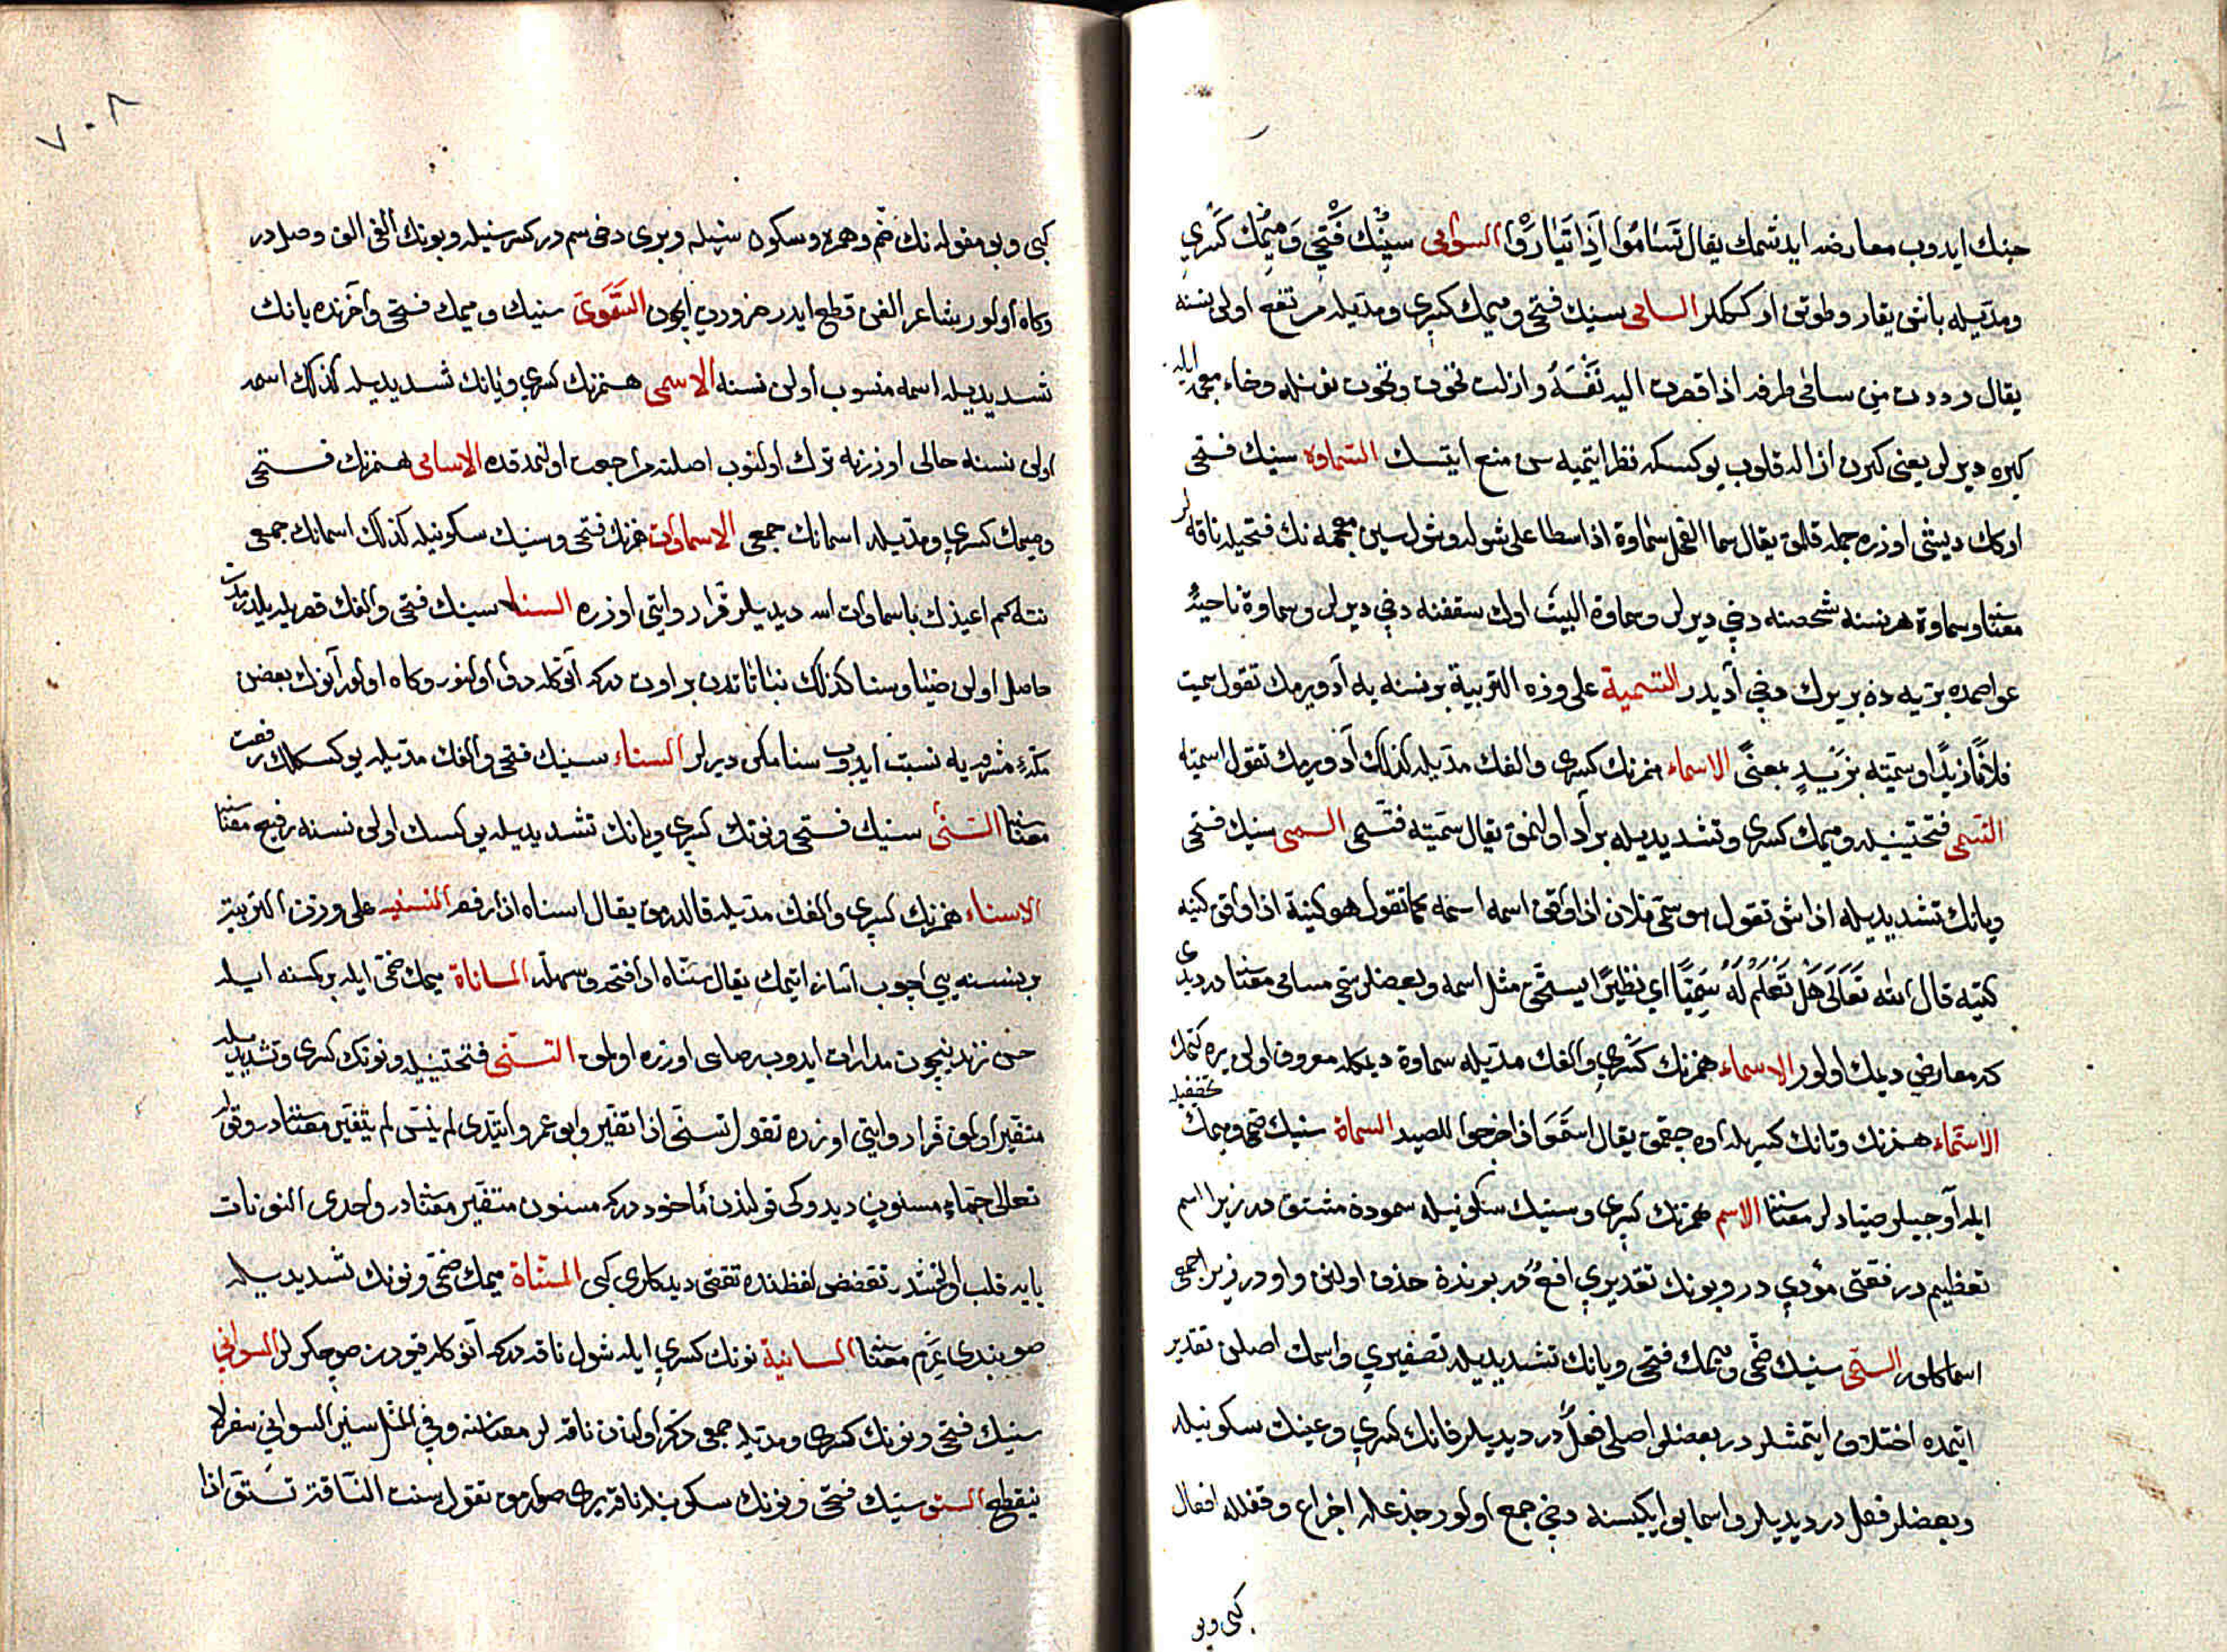 جنك ايدوب معارضه ايدشمك يقال تَسَامُوا اَذِا تَبَارَوْا السوامى سينك فَتْحِى وَميمك كَسْرِى
ومدّيله باشن يقارو طوتن اركككلر السامى سينك فتحى وميمك كسرى ومدّيله مرتفع اولن نسنه
يقال رددت من سامى طرفه اذا قصرت اليه نَفْسَهُ وازلت نخوت ونخوت نونله وخاء معجمه ايله
كبره ديرلر يعنى كبرن ازاله قلوب يوكسكه نظر ايتميه سن منع ايتسك السَّماوة سينك فتحى
اوكك ديشى اوزره حمله قلمق يقال سما الفحل سَماوة اذا سطا على شوله وشول شين معجمه نك فتحيله ناقه لر
معناسنه وسماوة هر نسنه شخصنه دخى ديرلر وسماوة البيت اوك سقفنه دخى ديرلر وسماوة ناحيهٔ
عواصمده بريّه ده بر يرك دخى آديدر التسمية على وزن التربية بر نسنه يه آد ويرمك تقول سميت
فلاناً زيداً وسمّيته بزَيدٍ بمعنىً الاسماء همزنك كسرى والفك مدّيله كذلك آد ويرمك تقول اسميته
التسمى فتحتينيله وميمك كسرى وتشديديله بر آد اولنمق يقال سَمّيته فتَسَمى السمى سينك فتحى
ويانك تشديديله اداش تقول هو سمى فلان اذا وافق اسمه اسمه كما تقول هو كنيه اذا وافق كنيته
كنيته قال الله تعَالَى هَلْ تَعْلَمُ لَهُ سَمِيّاً اى نظيراً يستحق مثل اسمه وبعضلر سمى مسامى معناسنه در ديدى
كه معارض ديمك اولور الاسماء همزنك كَسْرى والفك مدّيله سماوة ديمكله معروف اولن يره كتمك
الاستماء همزنك وتانك كسريله آوه چقمق يقال استَمَوا اذا خرجوا للصيد السماة سينك ضمى وميمك تخفيفيله
ايله آوجيلر صيّادلر معناسنه الاسم همزنك كسرى وسينك سكونيله سمودن مشتق در زيرا اسم
تعظيم در رفعتى مؤدى در وبونك تقديرى افعٌ در بوندن حذف اولنن واودر زيرا جمعى
اسما كلور السمى سينك ضمى وميمك فتحى ويانك تشديديله تصغيرى واسمك اصلن تقدير
ايتمده اختلاف ايتمشلردر بعضلر اصلى فعلٌ در ديديلر فانك كسرى وعينك سكونيله
وبعضلر فعل در ديديلر واسما بو ايكيسنه دخى جمع اولور جذعله اجذاع وقفلله اقفال
كبى وبو
٧٠٨
كبى وبو مقوله نك ضم وهمزه وسكون سينله وبرى دخى سم در كسر سينله وبونك الفى الف وصل در
وكاه اولور شاعر الفن قطع ايدر ضرورت ايچون السَّمَوىّ سينك وميمك فتحى وآخرنده يانك
تشديديله اسمه منسوب اولن نسنه الاسمى همزنك كسرى ويانك تشديديله كذلك اسمه
اولن نسنه حالى اوزرنه ترك اولنوب اصلنه مراجعت اولنمدقده الاسامى همزنك فتحى
وميمك كسرى ومدّيله اسمانك جمعى الاسماوات همزنك فتحى وسينك سكونيله كذلك اسمانك جمعى
نته كم اعيذك باسماوات الله ديديلر فرّا روايتى اوزره السنا سينك فتحى والفك قصريله يلدرمدن
حاصل اولن ضيا وسنا كذلك نباتاتدن بر اوت دركه آنكله دوا اولنور وكاه اولور آنوك بعضن
مكّهٔ مشرفه يه نسبت ايدوب سنا مكى ديرلر السناء سينك فتحى والفك مدّيله يوكسكلك رفعت
معناسنه السَّنىّ سينك فتحى ونونك كسرى ويانك تشديديله يوكسك اولن نسنه رفيع معناسنه
الاسناء همزنك كسرى والفك مدّيله قالدرمق يقال اسناه اذا رفعه التسنيه على وزن التربية
بر نسنه يى اچوب آسان ايتمك يقال سَنّاه اذا فتحه وسهله المساناة ميمك ضمى ايله بر كسنه ايله
حسن ... ايچون مدارات ايدوب ... اوزره اولمق التسَنّى فتحتينيله ونونك كسرى وتشديديله
متغير اولمق فرّا روايتى اوزره تقول تسنى اذا تغير وابو عمرو ايتدى لم يتسن لم يتغير معناسنه در وقوله
تعالى حماءٍ مسنون ديدوكى قولندن مأخوذ دركه مسنون متغير معناسنه در واحدى النونات
يايه قلب اولنمشدر تقضض لفظنده تقضى ديدكلرى كبى المسَنّاة ميمك ضمى ونونك تشديديله
صو بندى عَرِم معناسنه السانية نونك كسرى ايله شول ناقه دركه آنوكله قيودن صو چكرلر السوانى
سينك فتحى ونونك كسرى ومدّيله جمعى ذكر اولنان ناقه لر معناسنه وفى المثل سير السوانى سفر لا
ينقطع السنو سينك فتحى ونونك سكونيله ناقه يرى صوارمق تقول سنت الناقة تسنو اذا